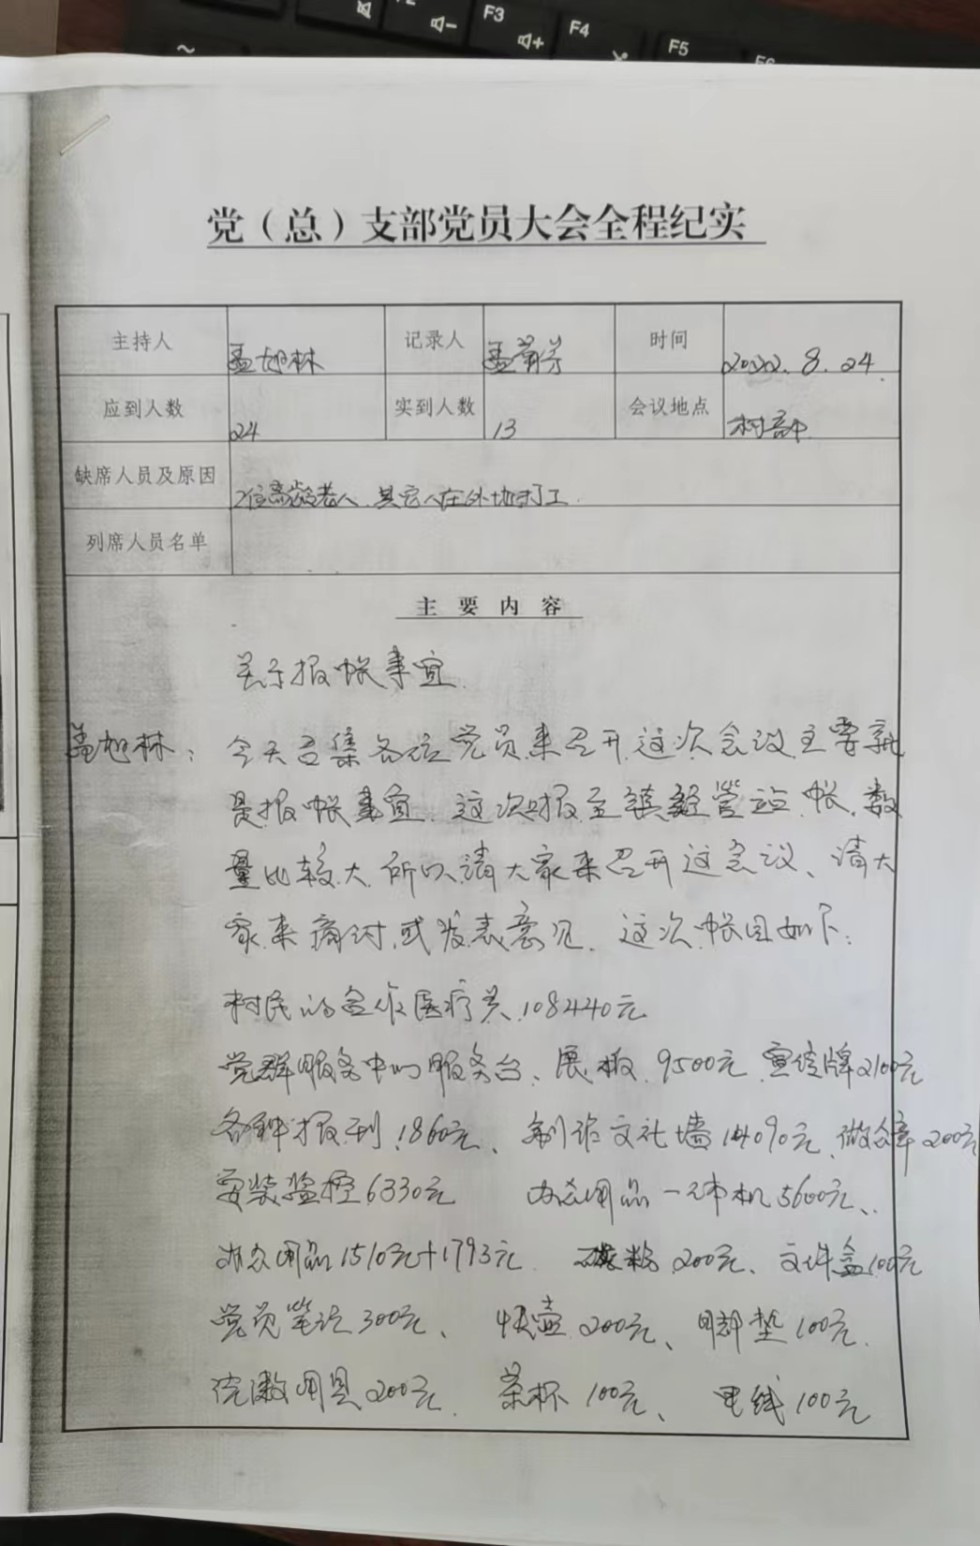 F3
F4
F5
党（总）支部党员大会全程纪实
主持人 孟旭林 记录人 孟 时间 2022.8.24.
应到人数 24 实到人数 13 会议地点 村部
缺席人员及原因 2位高龄老人.其它人在外地打工
列席人员名单
主要内容
关于报帐事宜.
孟旭林：今天召集各位党员来召开这次会议主要就
是报帐事宜.这次报至镇经管站帐.数
量比较大.所以请大家来召开这会议、请大
家来商讨或发表意见.这次帐目如下：
村民的合作医疗费.108440元
党群服务中心服务台、展板.9500元.宣传牌2100元
各种报刊.1860元、制作文化墙14090元、做公章200元
安装监控6330元 办公用品一体机5600元、
办公用品1510元+1793元 碳粉200元、文件盒100元
党员笔记300元、快壶.200元、脚垫100元.
洗漱用具200元. 茶杯100元、电线100元